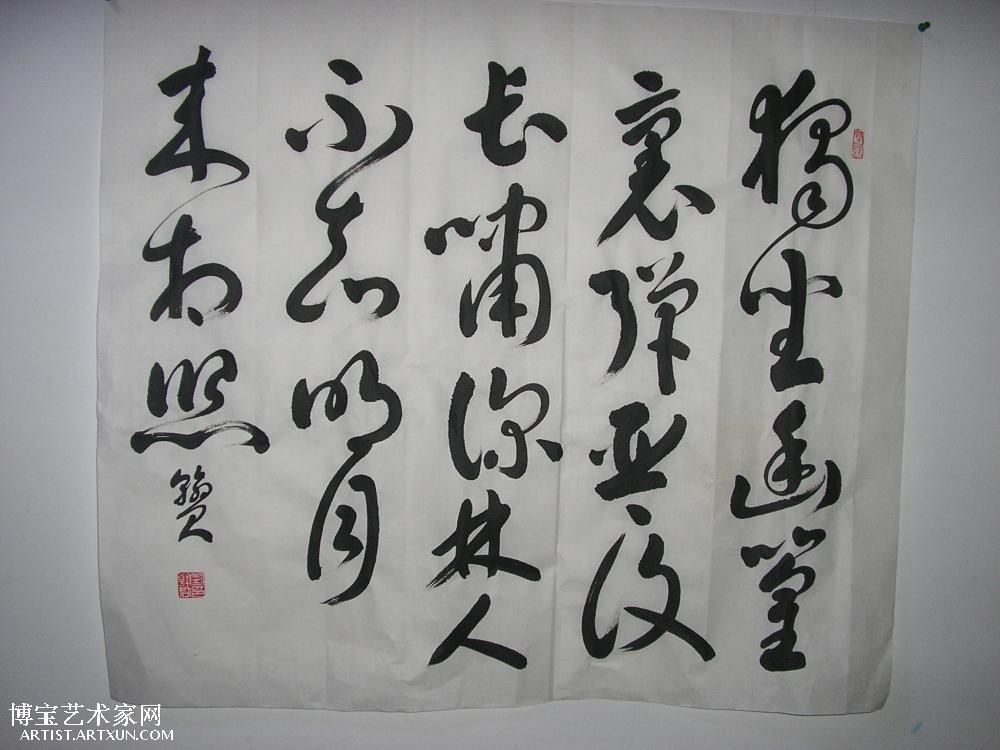 獨坐幽篁
裏弹琴復
长嘯深林人
不知明月
来相照
博宝艺术家网
ARTIST.ARTXUN.COM